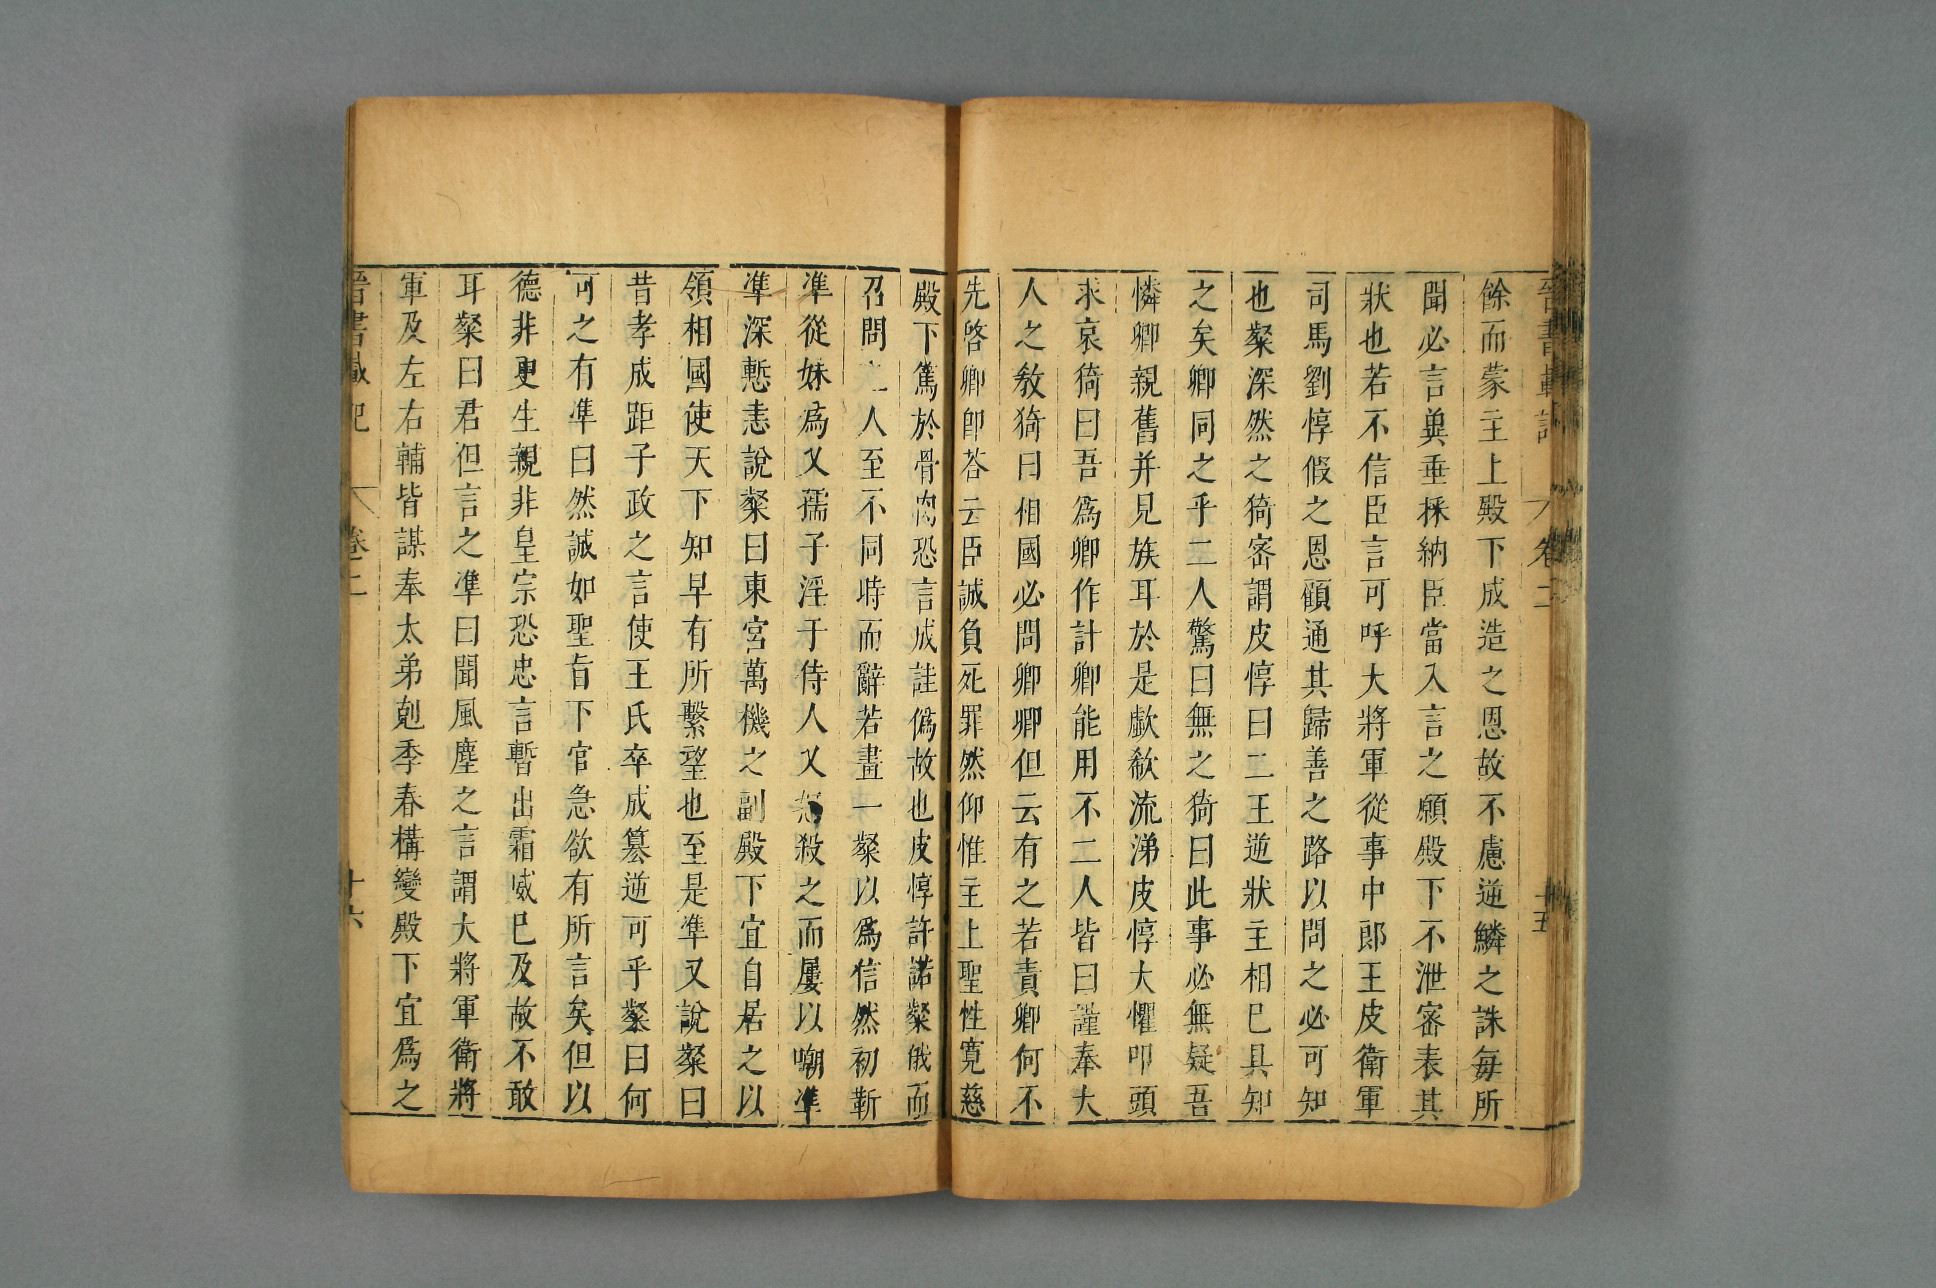 晉書載記 卷二 十五
餘而蒙主上殿下成造之恩故不慮逆鱗之誅每所
聞必言冀垂採納臣當入言之願殿下不泄密表其
狀也若不信臣言可呼大將軍從事中郎王皮衛軍
司馬劉惇假之恩顧通其歸善之路以問之必可知
也粲深然之猗密謂皮惇曰二王逆狀主相已具知
之矣卿同之乎二人驚曰無之猗曰此事必無疑吾
憐卿親舊并見族耳於是歔欷流涕皮惇大懼叩頭
求哀猗曰吾為卿作計卿能用不二人皆曰謹奉大
人之教猗曰相國必問卿卿但云有之若責卿何不
先啓卿卽荅云臣誠負死罪然仰惟主上聖性寬慈
殿下篤於骨肉恐言成詿僞故也皮惇許諾粲俄而
召問之人至不同時而辭若畫一粲以為信然初靳
準從妹為乂孺子淫于侍人乂怒殺之而屢以嘲準
準深慙恚說粲曰東宮萬機之副殿下宜自居之以
領相國使天下知早有所繫望也至是準又說粲曰
昔孝成距子政之言使王氏卒成篡逆可乎粲曰何
可之有準曰然誠如聖旨下官急欲有所言矣但以
德非更生親非皇宗恐忠言暫出霜威已及故不敢
耳粲曰君但言之準曰聞風塵之言謂大將軍衛將
軍及左右輔皆謀奉太弟剋季春構變殿下宜為之
晉書載記 卷二 十六